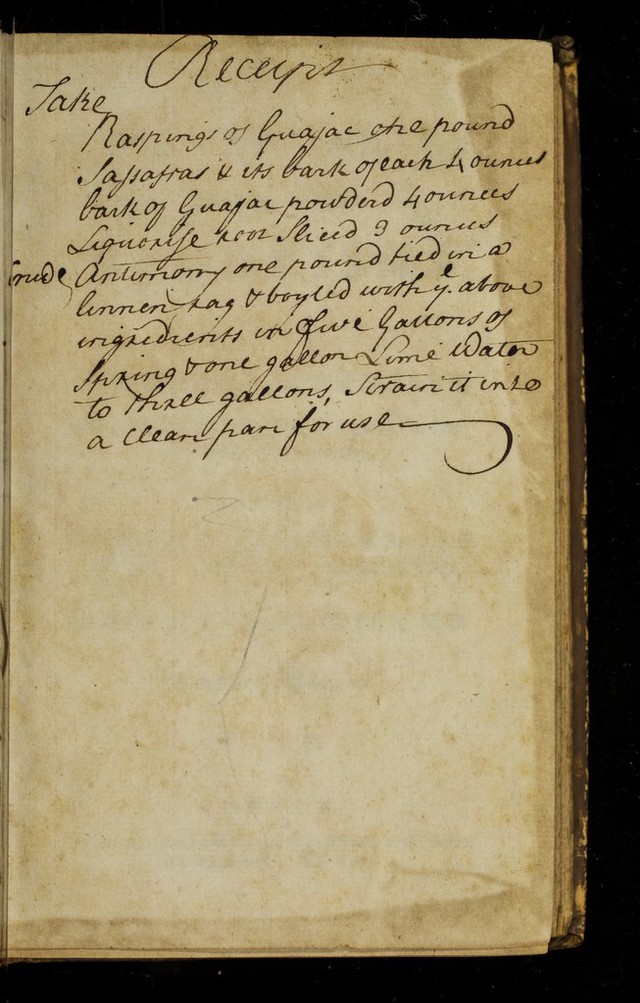 Receipt
Take
Raspings of Guajac one pound
Sassafras & its bark of each 4 ounces
bark of Guajac powderd 4 ounces
Liquorise root Sliced 3 ounces
Crude Antimony one pound tied in a
linnen rag & boyled with ye above
ingredients in five Gallons of
Spring & one gallon Lime Water
to three gallons, Strain it into
a clean pan for use